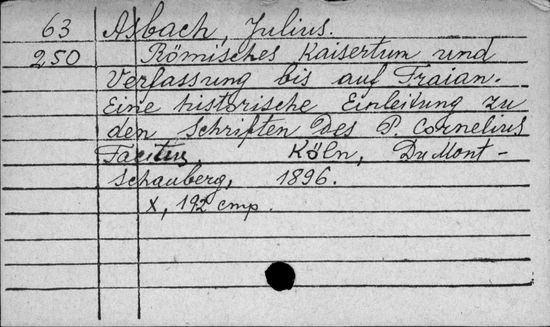 63 Asbach, Julius.
250 Römisches Kaisertum und
Verfassung bis auf Traian.
Eine historische Einleitung zu
den Schriften Des P. Cornelius
Tacitus, Köln, Du Mont-
Schauberg, 1896.
X, 192 cmp.